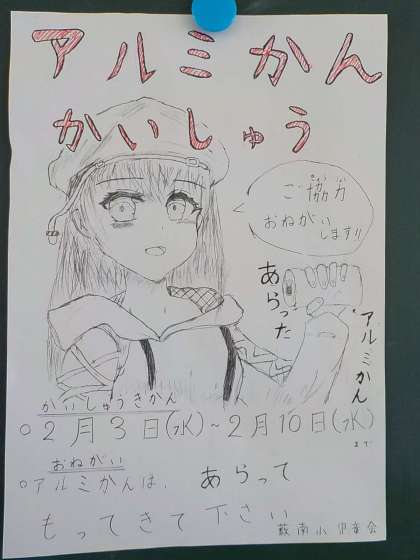 アルミかん
かいしゅう
ご協力
おねがい
します!!
あらった
アルミかん
かいしゅうきかん
○2月3日(水)~2月10日(水)
まで
おねがい
○アルミかんは、あらって
もってきて下さい
薮南小児童会